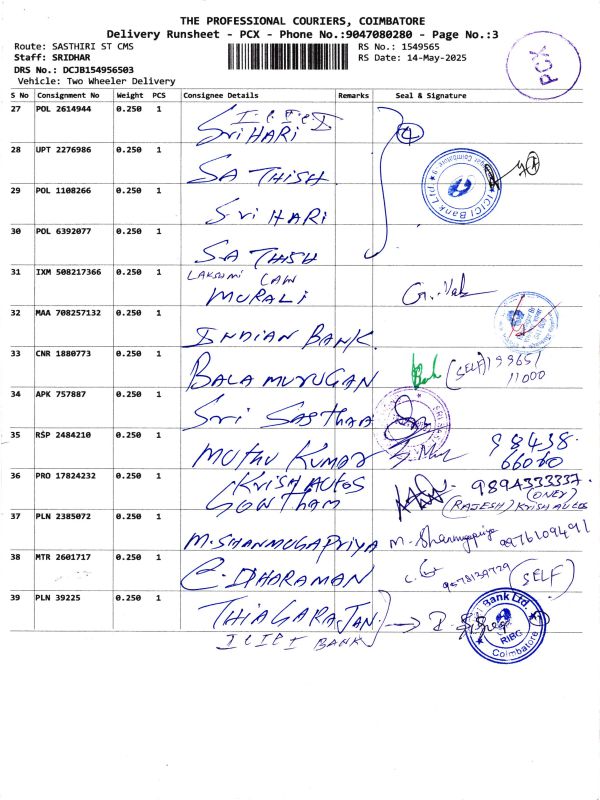 THE PROFESSIONAL COURIERS, COIMBATORE
Delivery Runsheet - PCX - Phone No.:9047080280 - Page No.:3
Route: SASTHIRI ST CMS
RS No.: 1549565
Staff: SRIDHAR
RS Date: 14-May-2025
DRS No.: DCJB154956503
Vehicle: Two Wheeler Delivery
PCX
S No Consignment No Weight PCS Consignee Details Remarks Seal & Signature
27 POL 2614944 0.250 1 SriHARI
4
28 UPT 2276986 0.250 1 SATHISH
ICICI Bank Ltd
29 POL 1108266 0.250 1 Sri HARi
30 POL 6392077 0.250 1 SATHISH
31 IXM 508217366 0.250 1 LAKSHMI LAW
MURALI
32 MAA 708257132 0.250 1 INDIAN BANK
33 CNR 1880773 0.250 1 BALAMURUGAN (SELF) 199651
11000
34 APK 757887 0.250 1 Sri Sasthaa
35 RSP 2484210 0.250 1 MUTHU KUMAR 98438
66060
36 PRO 17824232 0.250 1 KRISH AUTOS 9894333337
GOWTHAM (RAJESH) KRISH AUTOS
37 PLN 2385072 0.250 1 M.SHANMUGAPRIYA M. Shanmugapriya 9976109491
38 MTR 2601717 0.250 1 C. DHARAMAN 9578139729 (SELF)
39 PLN 39225 0.250 1 THIAGARAJAN
ICICI BANK
Bank Ltd.
RIBG
Coimbatore